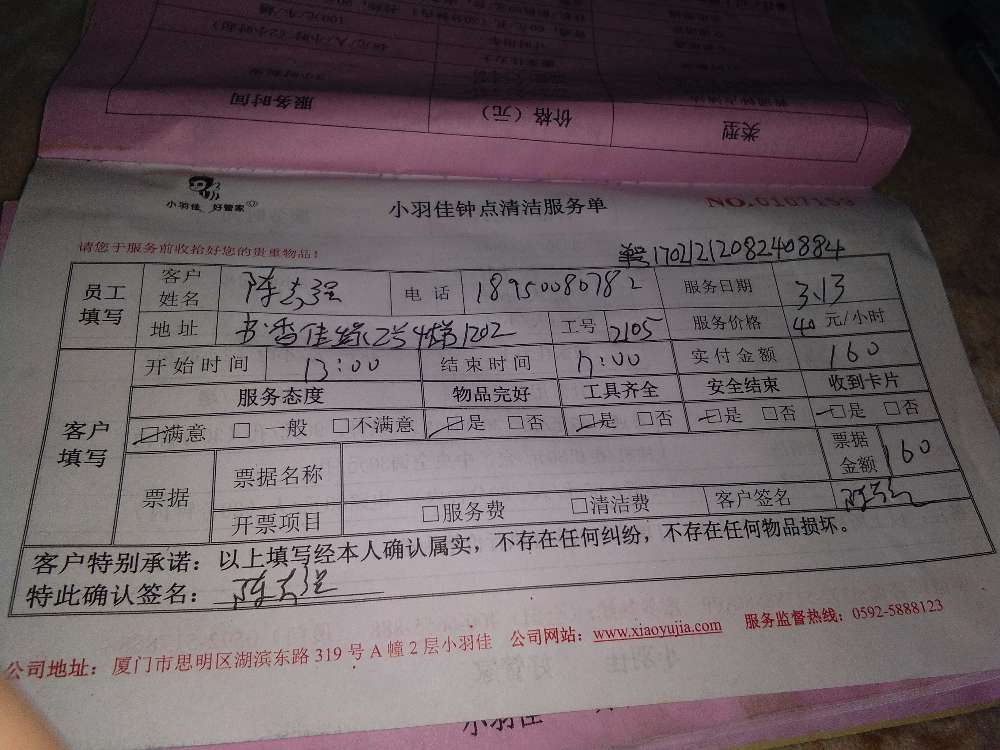 服务时间 价格(元) 类型
小羽佳 好管家
小羽佳钟点清洁服务单
NO.0107159
请您于服务前收拾好您的贵重物品!
1702121208240884
员工填写 客户姓名 陈志程 电话 18950080782 服务日期 3.13
地址 书香佳缘2号4梯1202 工号 2105 服务价格 40 元/小时
客户填写 开始时间 13:00 结束时间 17:00 实付金额 160
服务态度 物品完好 工具齐全 安全结束 收到卡片
☑满意 □一般 □不满意 ☑是 □否 ☑是 □否 ☑是 □否 ☑是 □否
票据 票据名称 票据金额 160
开票项目 □服务费 □清洁费 客户签名
客户特别承诺:以上填写经本人确认属实,不存在任何纠纷,不存在任何物品损坏。
特此确认签名:陈志程
公司地址:厦门市思明区湖滨东路 319 号 A 幢 2 层小羽佳 公司网站:www.xiaoyujia.com 服务监督热线:0592-5888123
小羽佳